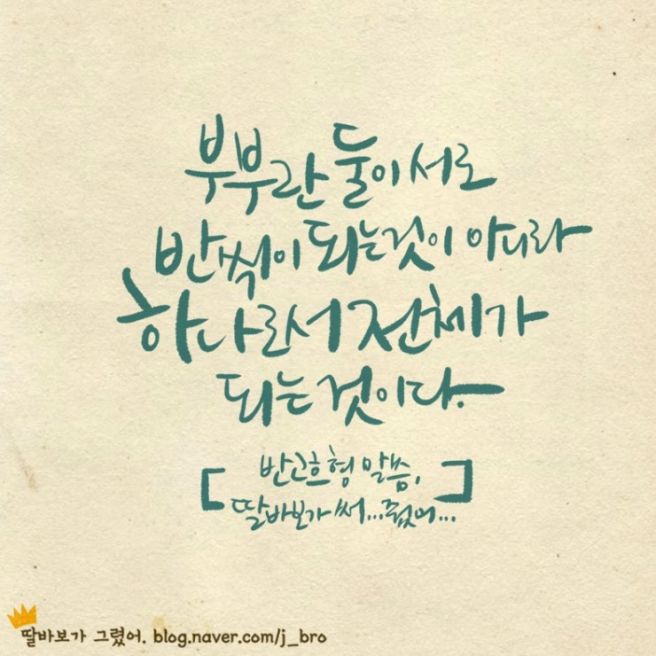 부부란 둘이 서로
반씩이 되는것이 아니라
하나로서 전체가
되는 것이다.
[ 반고흐형 말씀,
딸바보가 써...줬어... ]
딸바보가 그렸어. blog.naver.com/j_bro